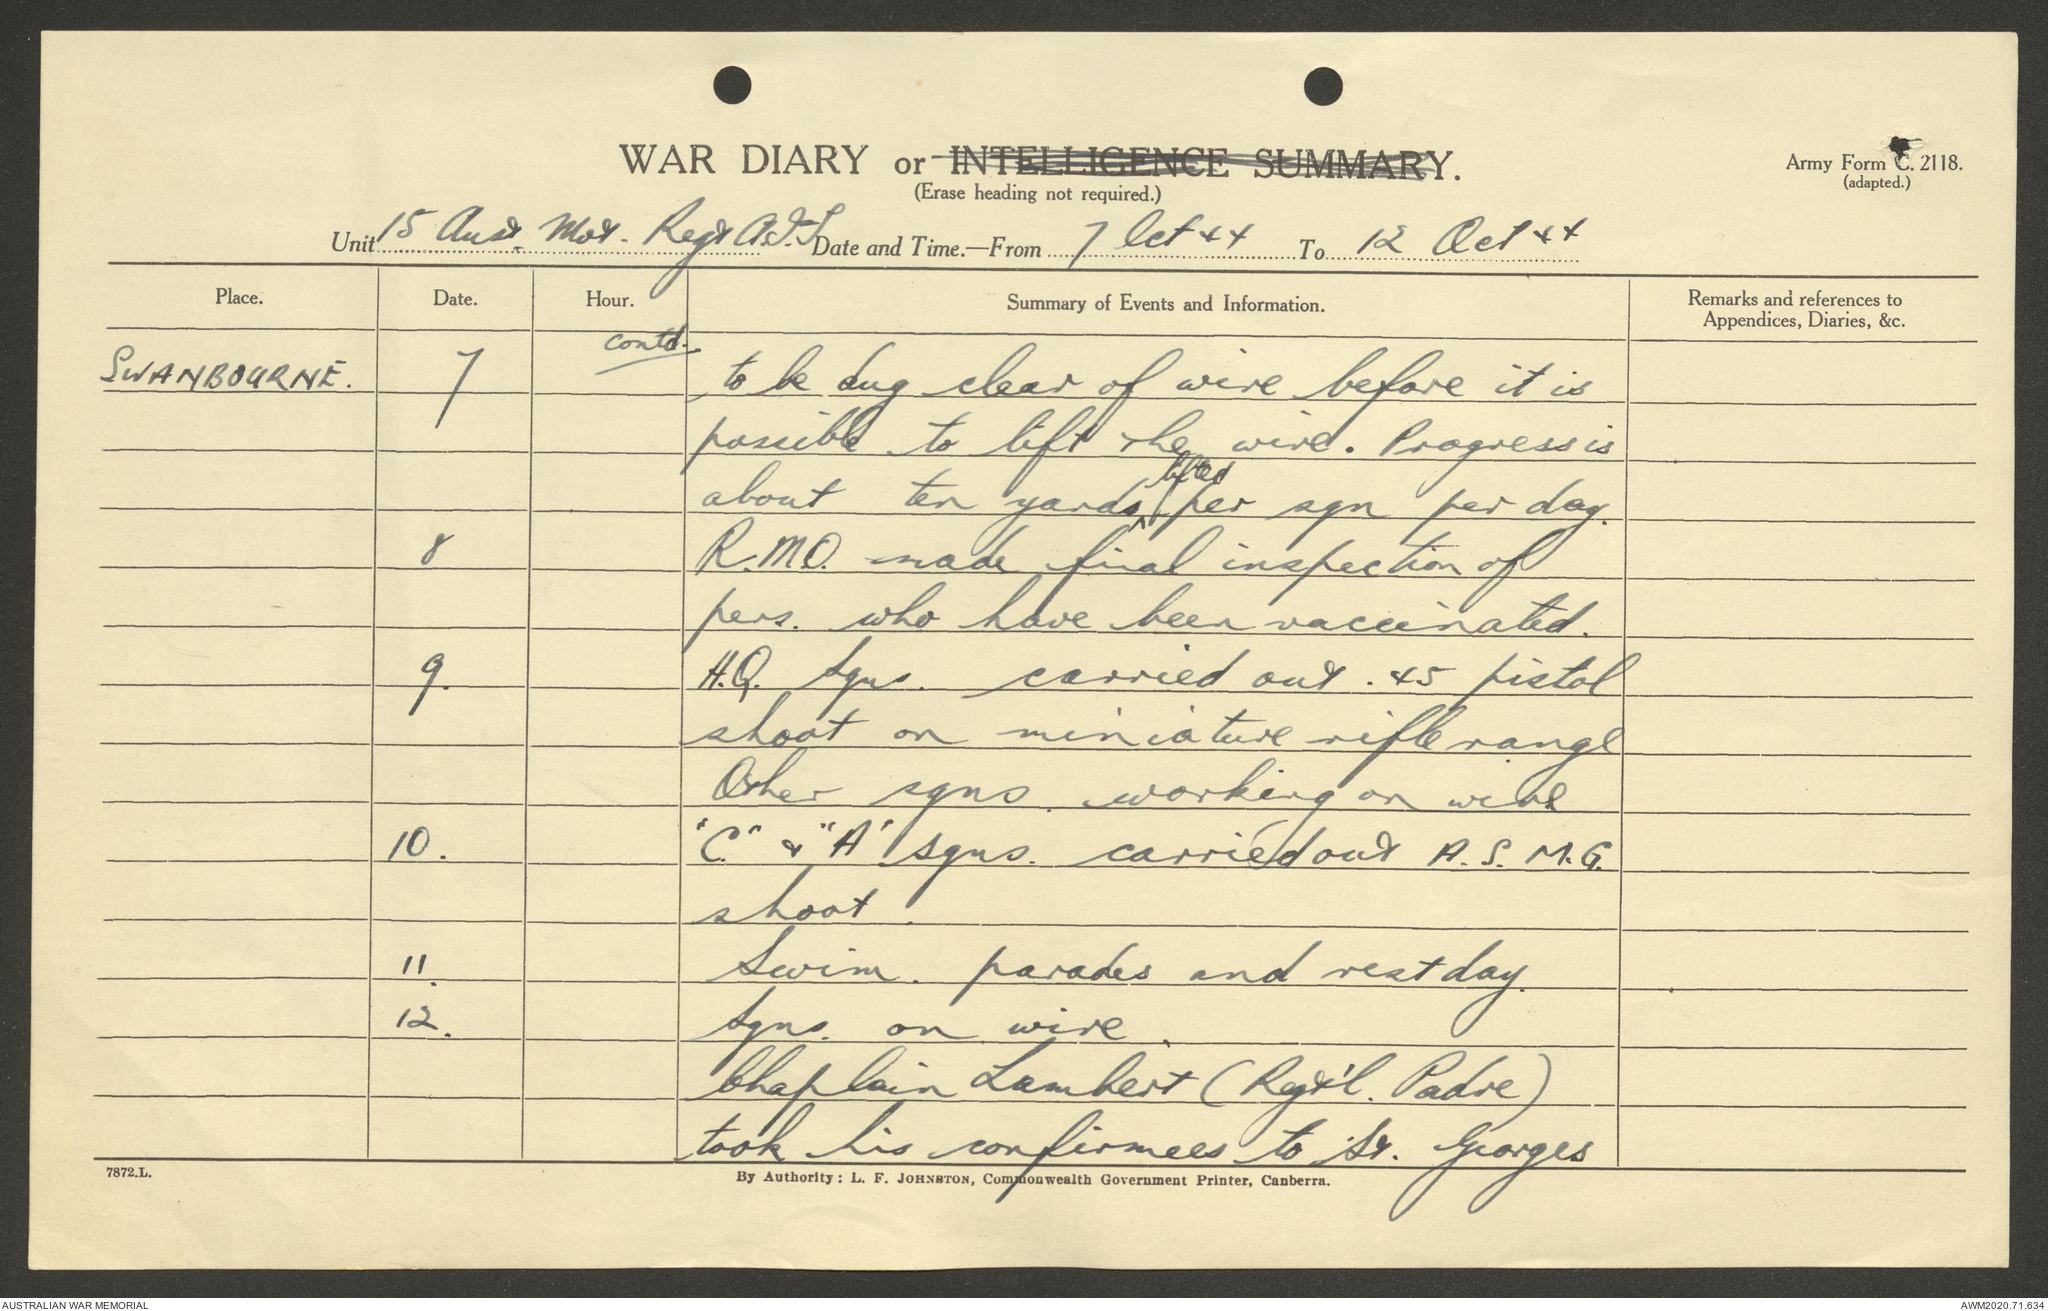 WAR DIARY or INTELLIGENCE SUMMARY.
(Erase heading not required.)
Army Form C. 2118.
(adapted.)
Unit 15 Aust. Mot. Regt A.I.F. Date and Time.—From 7 Oct 44 To 12 Oct 44
Place. Date. Hour. Summary of Events and Information. Remarks and references to
Appendices, Diaries, &c.
SWANBOURNE. 7 contd. to be dug clear of wire before it is
possible to lift the wire. Progress is
about ten yards lifted per sqn per day.
8 R.M.O. made final inspection of
pers. who have been vaccinated.
9. H.Q. Sqns. carried out .45 pistol
shoot on miniature rifle range
Other sqns. working on wire
10. "C" & "A" sqns. carried out A.S.M.G.
shoot.
11. Swim. parades and rest day.
12. Sqns. on wire.
Chaplain Lambert (Regt'l. Padre)
took his confirmees to St. Georges
7872.L.
By Authority: L. F. JOHNSTON, Commonwealth Government Printer, Canberra.
AUSTRALIAN WAR MEMORIAL
AWM2020.71.634